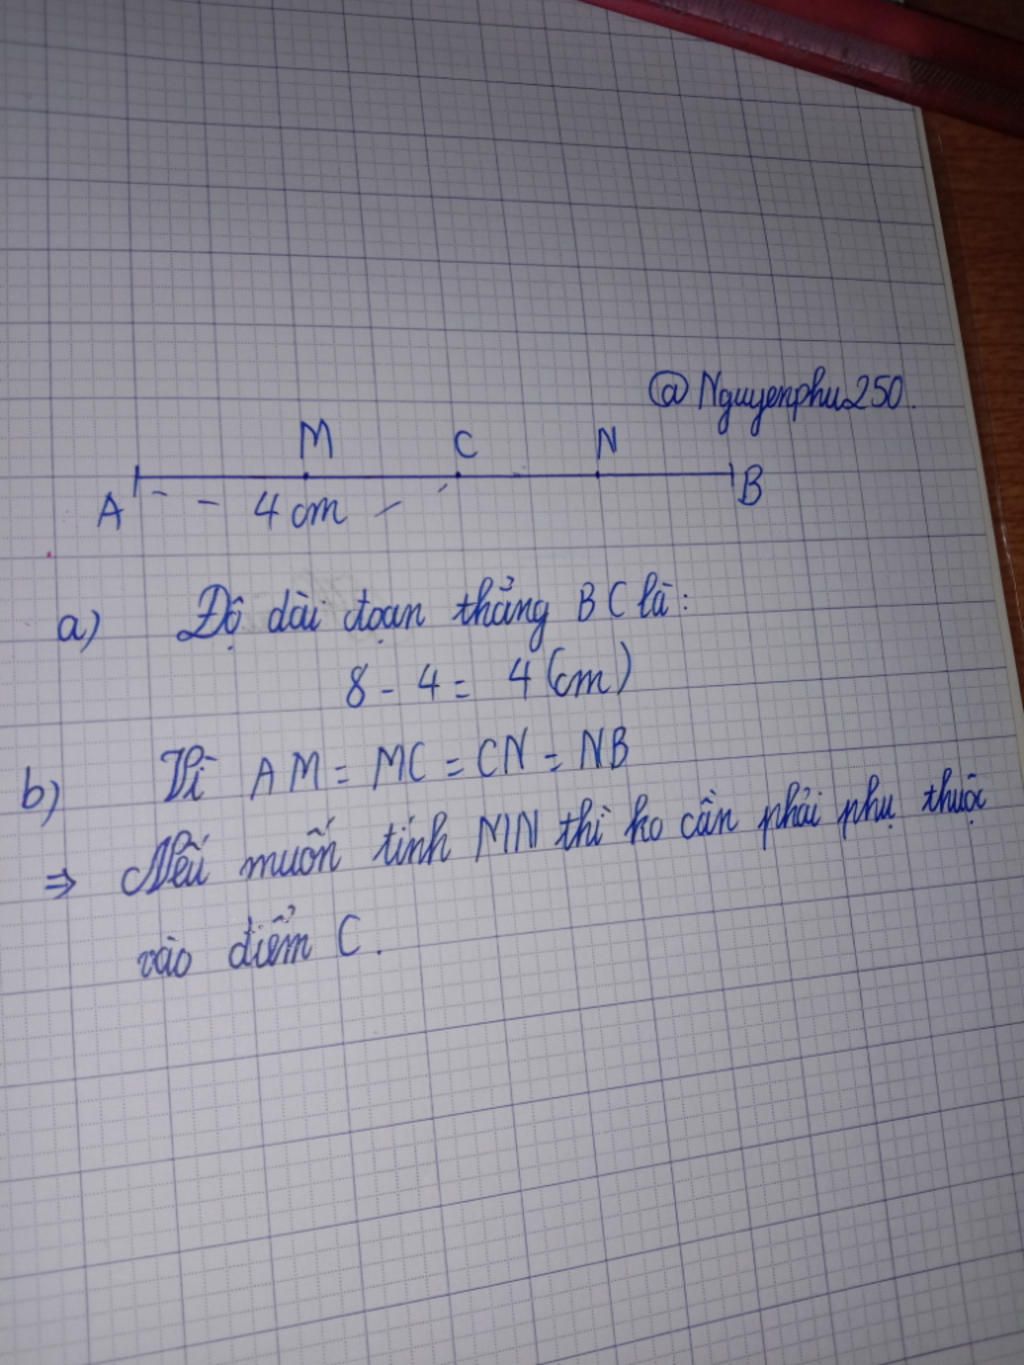 @Nguyenphu250.
M C N
A 4 cm B
a) Độ dài đoạn thẳng BC là:
8 - 4 = 4 (cm)
b) Vì AM = MC = CN = NB
⇒ Nếu muốn tính MN thì ko cần phải phụ thuộc
vào điểm C.